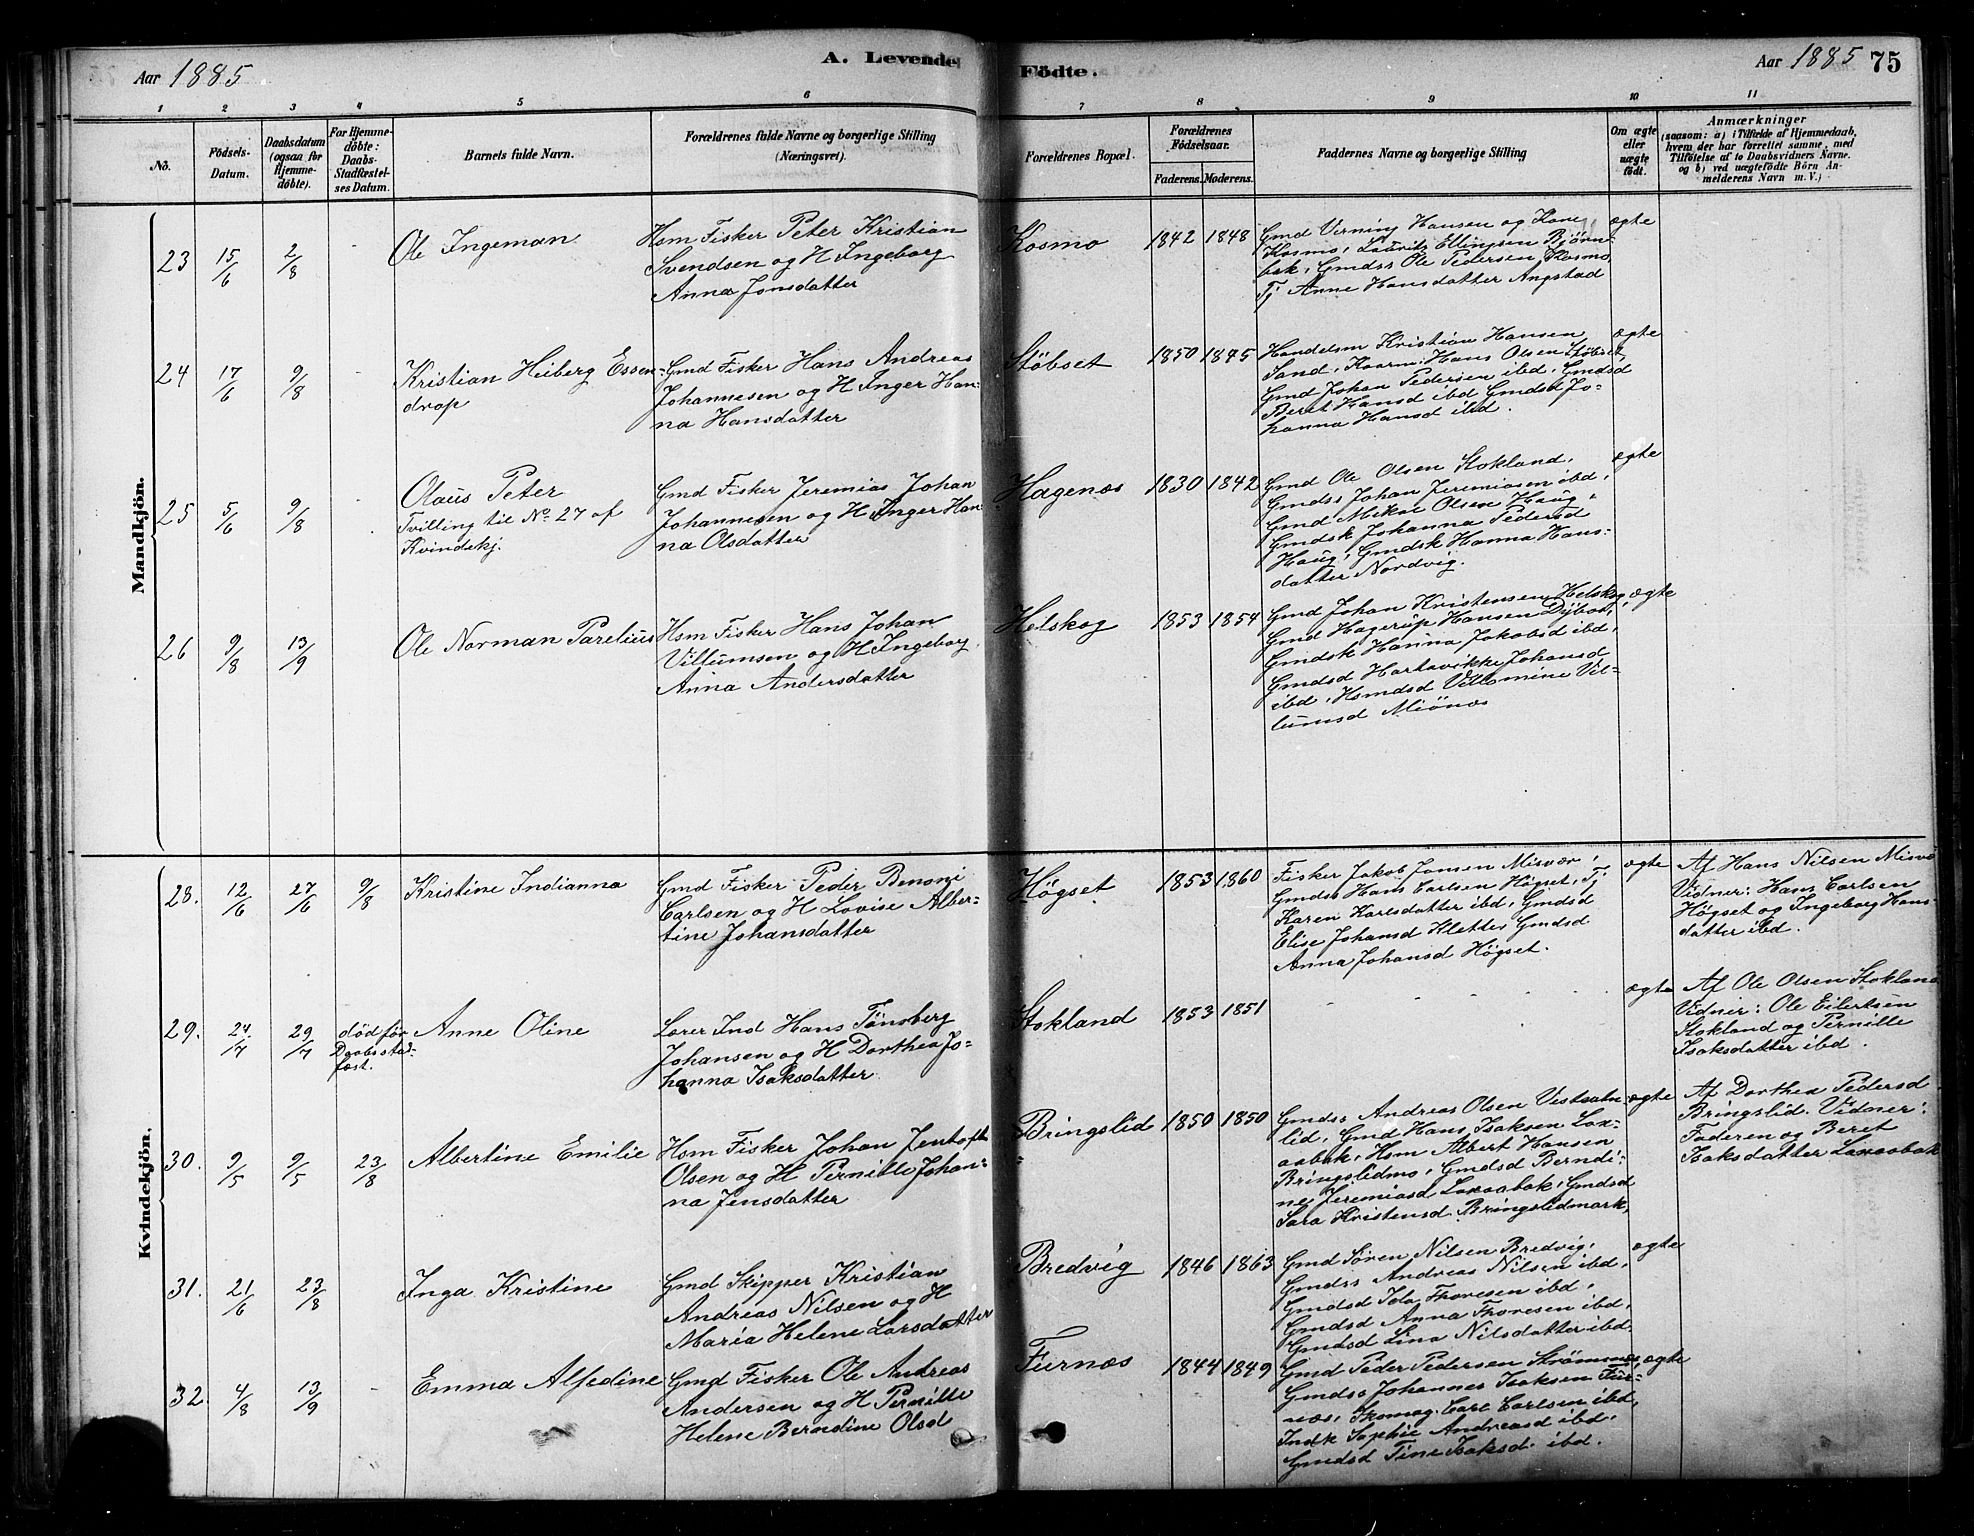 Aar 1885
A. Levende Födte.
Aar 1885 75
1 2 3 4 5 6 7 8 9 10 11
No.
Födsels-Datum.
Daabsdatum (ogsaa for Hjemmedöbte).
For Hjemmedöbte: Daabs-Stadfæstelses Datum.
Barnets fulde Navn.
Forældrenes fulde Navne og borgerlige Stilling (Næringsvei).
Forældrenes Bopæl.
Forældrenes Födselsaar.
Faderens. Moderens.
Faddernes Navne og borgerlige Stilling
Om ægte eller uægte födt.
Anmærkninger
(saasom: a) i Tilfælde af Hjemmedaab, hvem der har forrettet samme, med Tilföielse af to Daabsvidners Navne. og b) ved uægtefödte Börn Anmelderens Navn m. V.)
Mandkjön.
23 15/6 2/8
Ole Ingeman
Hsm Fisker Peter Kristian
Svendsen og H Ingeborg
Anna Jonsdatter
Kosmo 1842 1848
Gmd Verning Hansen og Kone
Kosmo, Laurits Ellingsen Bjørn-
bak, Gmdss Ole Pedersen Kosmo
Tj Anne Hansdatter Angstad
ægte
24 17/6 9/8 -
Kristian Heiberg Essen-
drop
Gmd Fisker Hans Andreas
Johannesen og H Inger Han-
na Hansdatter
Støbset 1850 1845
Handelsm Kristian Hansen
Sand, Kaarm. Hans Olsen Støbset,
Gmd Johan Pedersen ibd, Gmdsd
Beret Hansd ibd Gmdsd Jo-
hanna Hansd ibd.
ægte
25 5/6 9/8 .
Olaus Peter
Tvilling til No 27 af
Kvindekj.
Gmd Fisker Jeremias Johan
Johannesen og H Inger Han-
na Olsdatter
Hagenæs 1830 1842
Gmd Ole Olsen Stokland,
Gmdss Johan Jeremiasen ibd,
Gmd Mikal Olsen Haug,
Gmdsk Johanna Pedersd
Haug, Gmdsk Hanna Hans-
datter Nordvig.
ægte
26 9/8 13/9
Ole Norman Parelius
Hsm Fisker Hans Johan
Villumsen og H Ingeborg
Anna Andersdatter
Helskog 1853 1854
Gmd Johan Kristensen Helskog,
Gmd Hagerup Hansen Dybvat,
Gmdsk Hanna Jakobsd ibd,
Gmdsd Hartavikke Johansd
ibd, Hsmdsd Villomine Vil-
lumsd Miønes
ægte
Kvindekjön.
28. 12/6 27/6 9/8
Kristine Indianna
Gmd Fisker Peder Benoni
Carlsen og H Lovise Alber-
tine Johansdatter
Høgset 1853 1860
Fisker Jakob Jansen Misvær,
Gmdss Hans Carlsen Høgset, Tj
Karen Karlsdatter ibd, Gmdsd
Elise Johansd Klette, Gmdsd
Anna Johansd Høgset.
ægte
Af Hans Nilsen Misvæ
Vidner: Hans Carlsen
Høgset og Ingeborg Hans-
datter ibd.
29. 24/7 29/7 død før
Daabsstad-
fæst.
Anne Oline
Lærer Ind Hans Tønsberg
Johansen og H Dorthea Jo-
hanna Isaksdatter
Stokland 1853 1851
ægte
Af Ole Olsen Stokland
Vidner: Ole Eilertsen
Stokland og Pernille
Isaksdatter ibd.
30. 9/5 9/5 23/8
Albertine Emilie
Hsm Fisker Johan Jentoft
Olsen og H Pernille Johan-
na Jensdatter
Bringslid 1850 1850
Gmdss Andreas Olsen Vestvatn-
lid, Gmd Hans Isaksen Lax-
aabak, Hsm Albert Hansen
Bringslidmo, Gmdsd Berndi-
ne Jeremiasd Laxaabak, Gmdsd
Sara Kristensd Bringslidmark,
ægte
Af Dorthea Pedersd
Bringslid. Vidner:
Faderen og Beret
Isaksdatter Laxaabak
31. 21/6 23/8
Inga Kristine
Gmd Skipper Kristian
Andreas Nilsen og H
Maria Helene Larsdatter
Bredvig 1846 1863
Gmd Søren Nilsen Bredvig,
Gmdss Andreas Nilsen ibd,
Gmdsd Ida Thoresen ibd,
Gmdsd Anna Thoresen ibd,
Gmdsd Lina Nilsdatter ibd.
ægte
32. 4/8 13/9 -
Emma Alfedine
Gmd Fisker Ole Andreas
Andersen og H Pernille
Helene Berndine Olsd
Furnæs 1844 1849
Gmd Peder Pedersen Strømsnæs,
Gmdss Johannes Isaksen Fur-
næs, Skomag. Carl Carlsen ibd,
Indk Sophie Andreasd ibd,
Gmdsd Tine Isaksd. ibd.
ægte